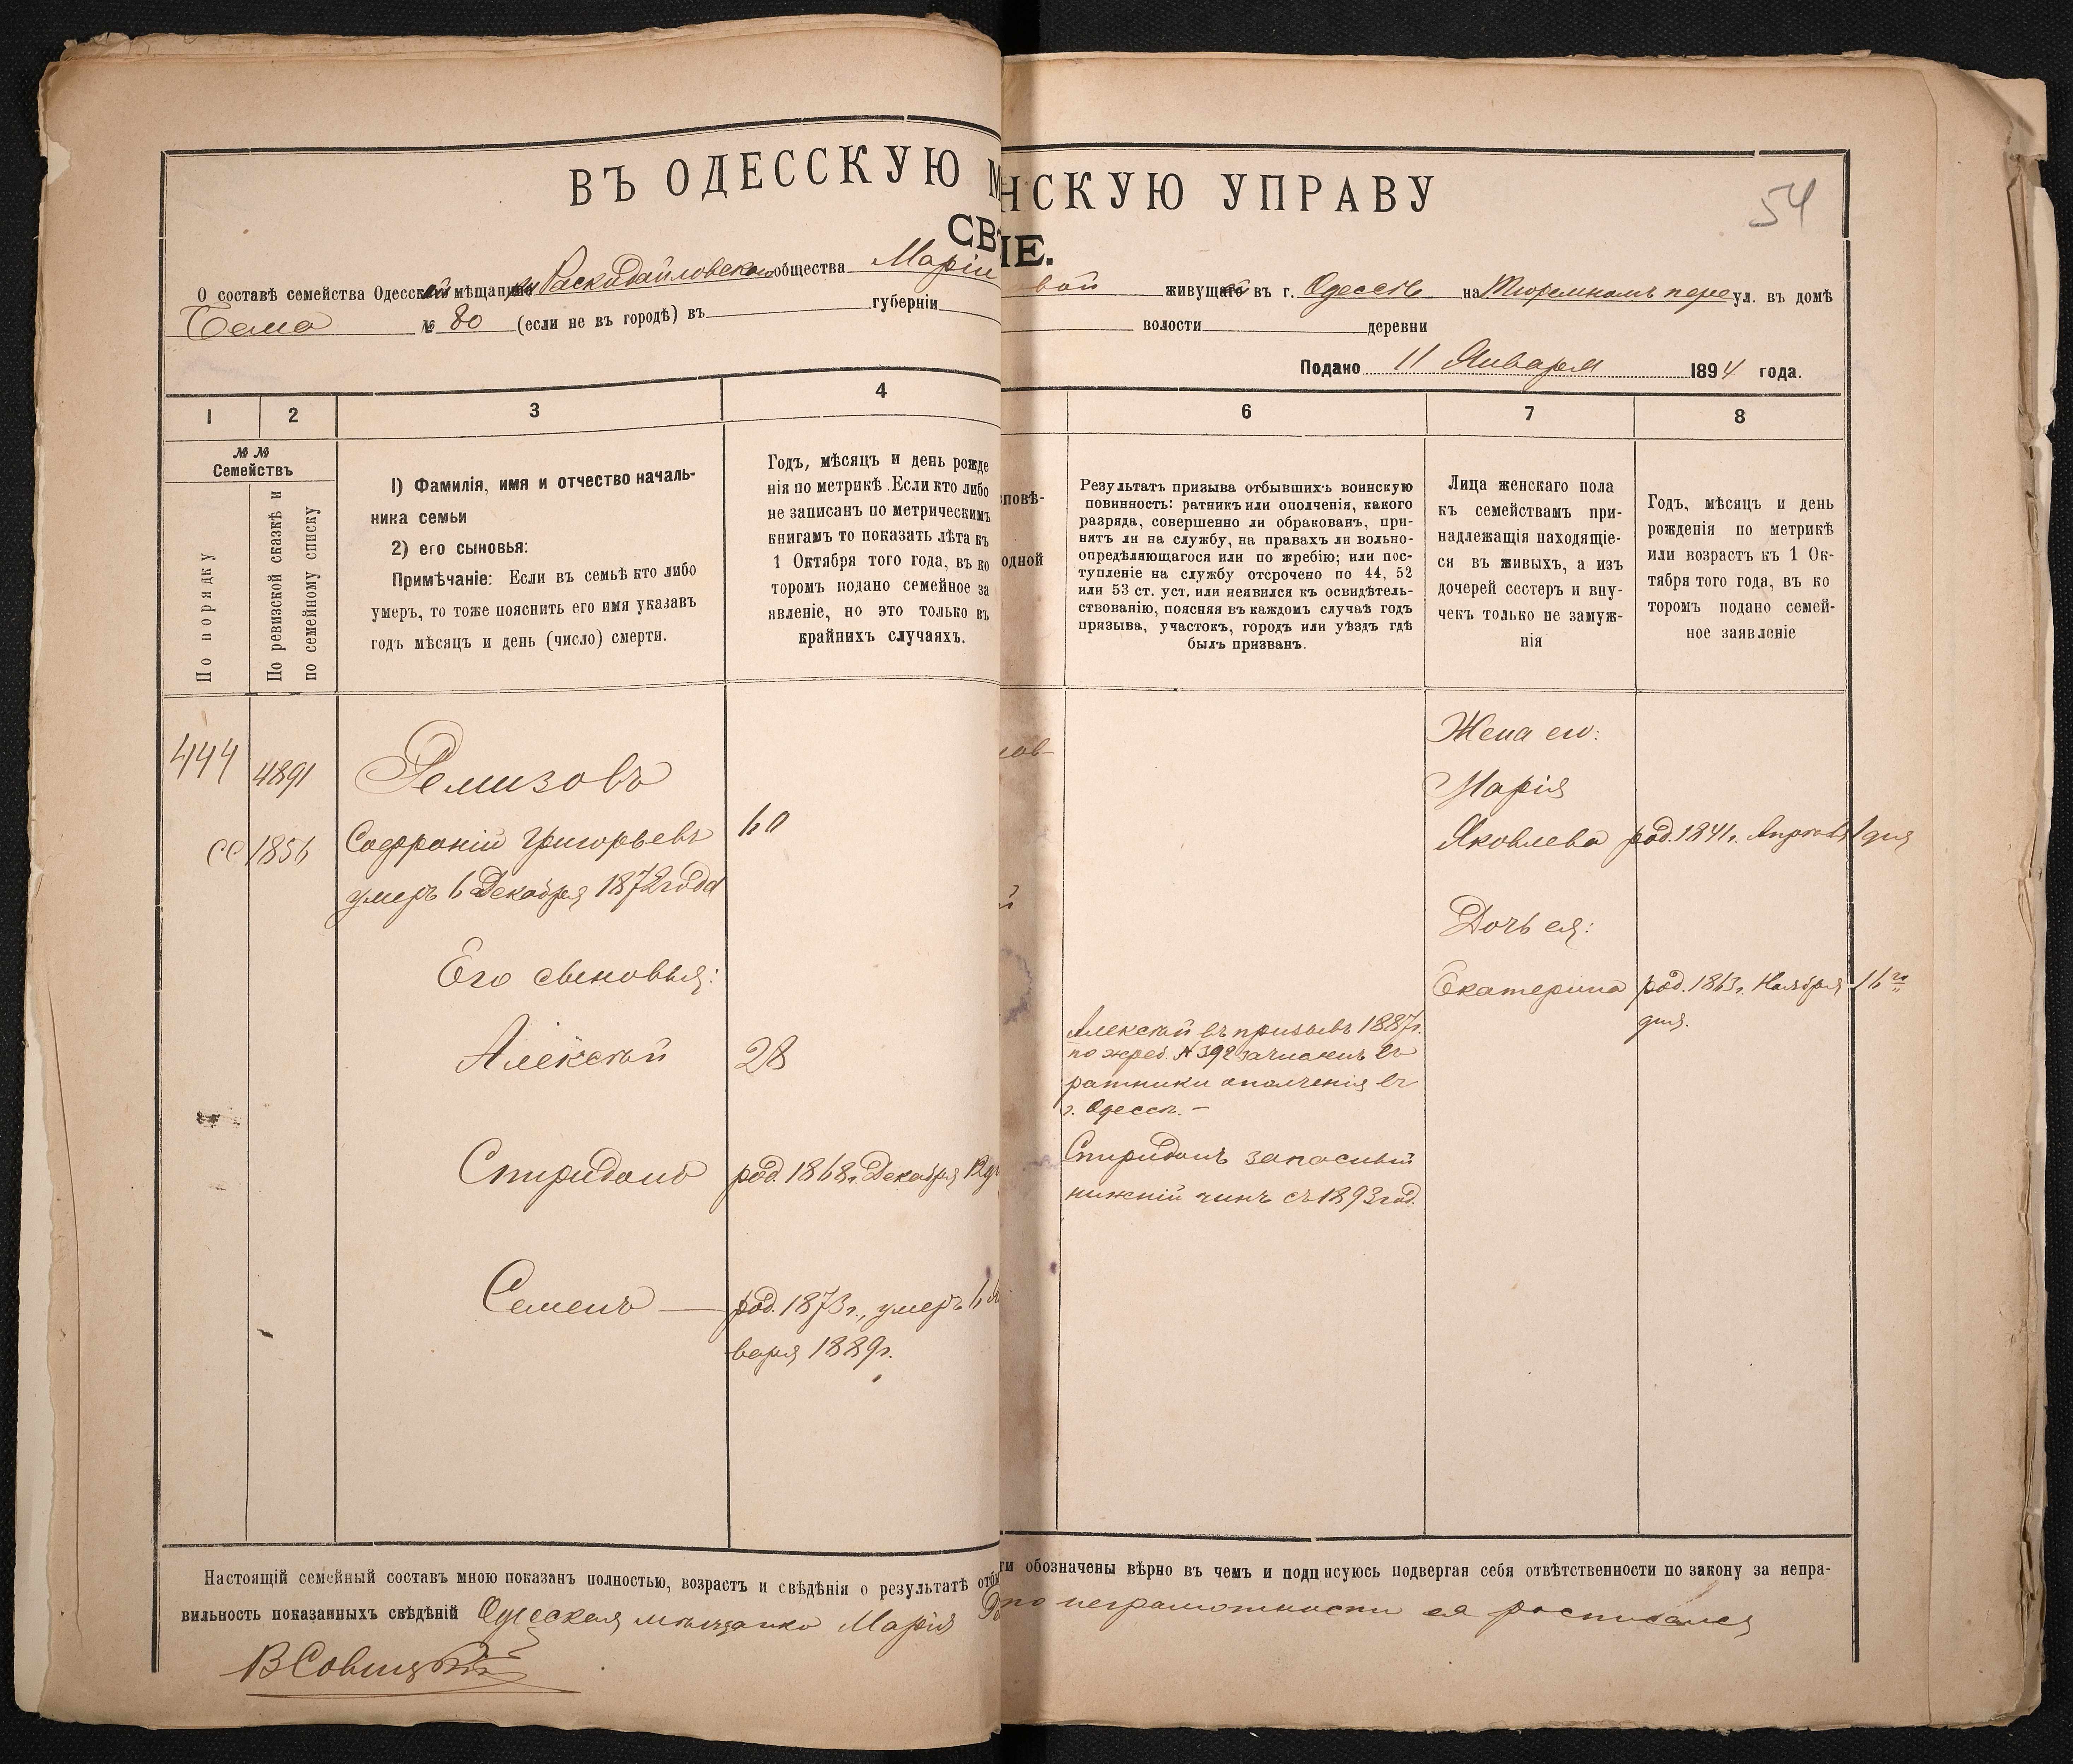 ВЪ ОДЕССКУЮ М НСКУЮ УПРАВУ
54
СВ IE.
О составѣ семейства Одесской мѣщанки Раскидайловскаго общества Маріи овой живущей въ г. Одессѣ на Тюремномъ переул. въ домѣ
Бема № 80 (если не въ городѣ) въ губерніи волости деревни
Подано 11 Января 1894 года.
1 2 3 4 6 7 8
№ №
Семействъ
По порядку
По ревизской сказкѣ и
по семейному списку
1) Фамилія, имя и отчество началь-
ника семьи
2) его сыновья:
Примѣчаніе: Если въ семьѣ кто либо
умеръ, то тоже пояснить его имя указавъ
годъ мѣсяцъ и день (число) смерти.
Годъ, мѣсяцъ и день рожде
нія по метрикѣ. Если кто либо
не записанъ по метрическимъ
книгамъ то показать лѣта къ
1 Октября того года, въ ко
торомъ подано семейное за
явленіе, но это только въ
крайнихъ случаяхъ.
повѣ-
одной
Результатъ призыва отбывшихъ воинскую
повинность: ратникъ или ополченія, какого
разряда, совершенно ли обракованъ, при-
нятъ ли на службу, на правахъ ли вольно-
опредѣляющагося или по жребію; или пос-
тупленіе на службу отсрочено по 44, 52
или 53 ст. уст. или неявился къ освидѣтель-
ствованію, поясняя въ каждомъ случаѣ годъ
призыва, участокъ, городъ или уѣздъ гдѣ
былъ призванъ.
Лица женскаго пола
къ семействамъ при-
надлежащія находящіе-
ся въ живыхъ, а изъ
дочерей сестеръ и вну-
чекъ только не замуж-
нія
Годъ, мѣсяцъ и день
рожденія по метрикѣ
или возрастъ къ 1 Ок-
тября того года, въ ко
торомъ подано семей-
ное заявленіе
444 4891 Ремизовъ
1856 Софроній Григорьевъ 60
умеръ 6 Декабря 1872 года
Его сыновья:
Алексѣй 28
Спиридонъ род. 1868 г. Декабря 12
Семенъ — род. 1873 г., умеръ 6
варя 1889 г.
Алексѣй въ призывъ 1887 г.
по жреб. № 392 зачисленъ въ
ратники ополченія въ
г. Одессѣ. —
Спиридонъ запасный
нижній чинъ съ 1893 год.
Жена его:
Марія
Яковлева род. 1841 г. Апрѣля 1 дня
Дочь ея:
Екатерина род. 1863 г. Ноября 16го
дня.
Настоящій семейный составъ мною показанъ полностью, возрастъ и свѣдѣнія о результатѣ отбы ти обозначены вѣрно въ чемъ и подписуюсь подвергая себя отвѣтственности по закону за непра-
вильность показанныхъ свѣдѣній Одесская мѣщанка Марія по неграмотности ея росписался